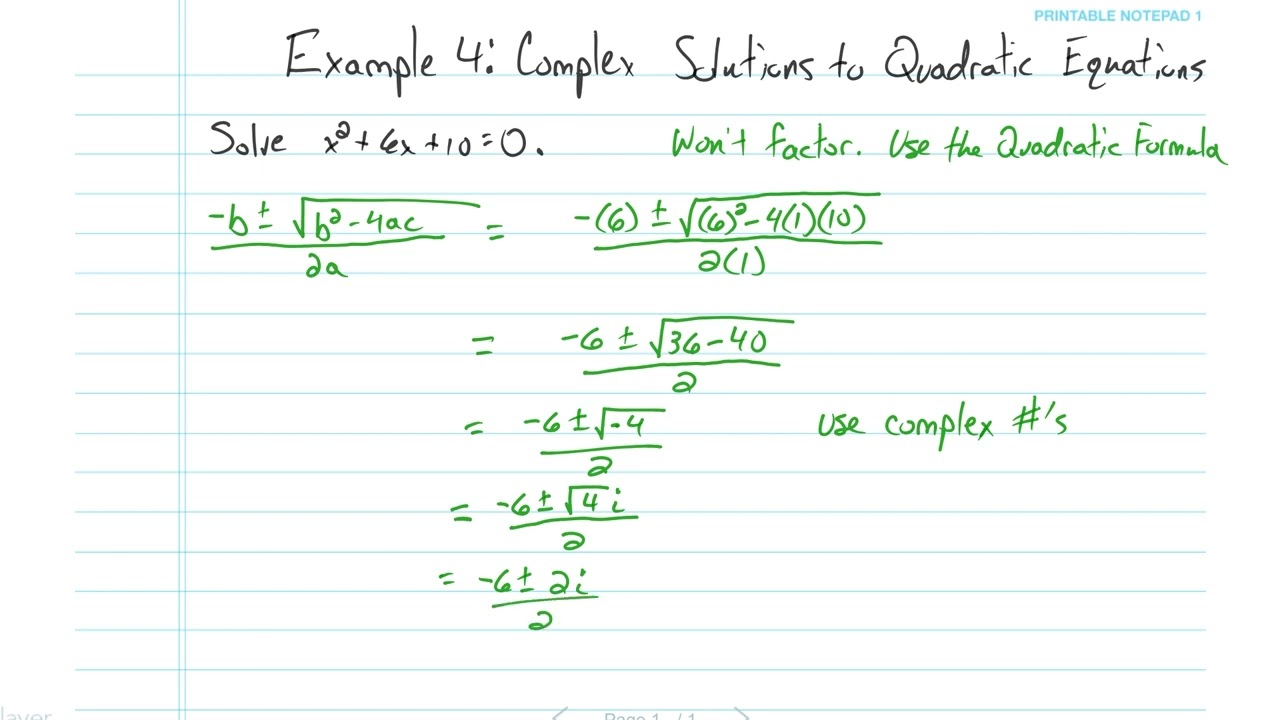 PRINTABLE NOTEPAD 1
Example 4: Complex Solutions to Quadratic Equations
Solve x² + 6x + 10 = 0. Won't factor. Use the Quadratic Formula
(-b ± √(b² - 4ac))/(2a) = (-(6) ± √((6)² - 4(1)(10)))/(2(1))
= (-6 ± √(36 - 40))/2
= (-6 ± √(-4))/2 use complex #'s
= (-6 ± √4 i)/2
= (-6 ± 2i)/2
layer < Page 1 / 1 >